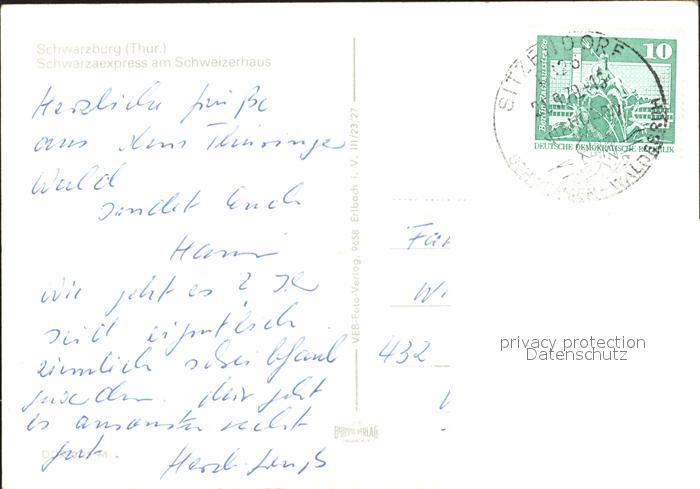 Schwarzburg (Thur.)
Schwarzaexpress am Schweizerhaus
Herzliche Grüße
aus dem Thüringer
Wald
sendet Euch
Hanni
Wie geht es
seid eigentlich
ziemlich schreibfaul
geworden. Mir geht
es ansonsten recht
gut.
Herzl. Gruß
VEB-Foto-Verlag, 9658 Erlbach i. V. III/23/27
10
DEUTSCHE DEMOKRATISCHE REPUBLIK
SITZENDORF
432
privacy protection
Datenschutz